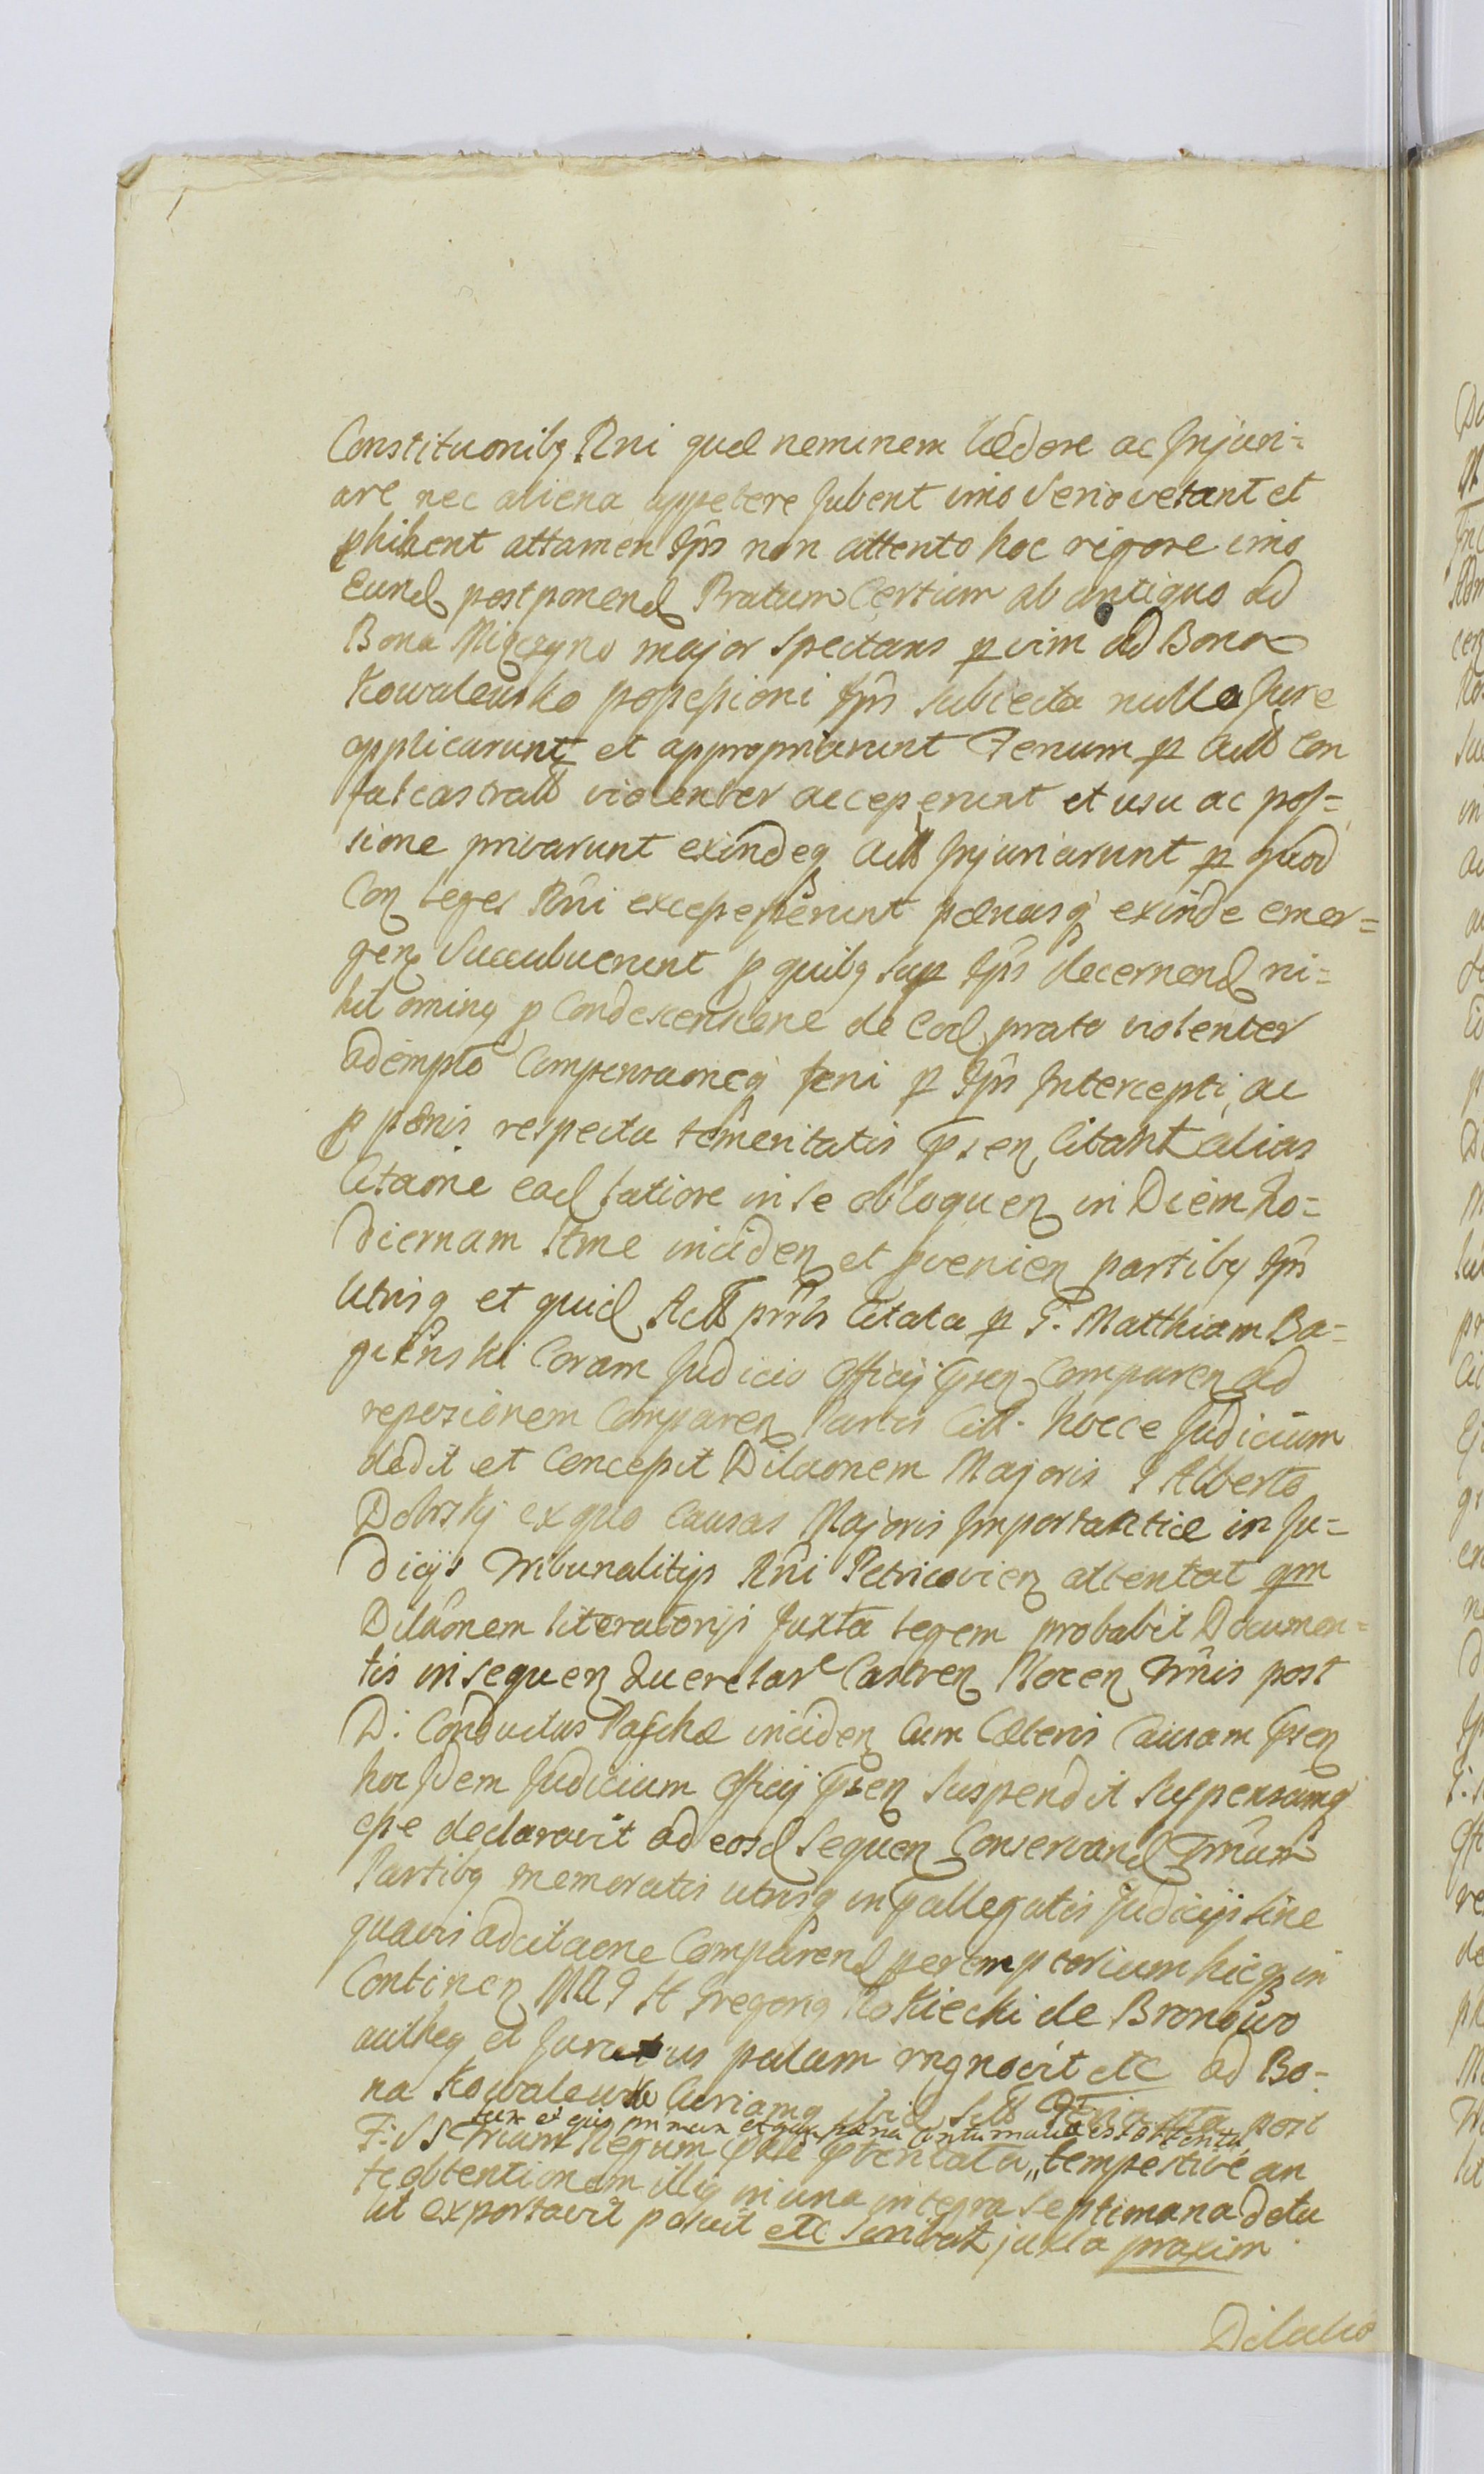 Constituonibq Rni quæ neminem lædere ac Injuri=
are nec aliena appetere Jubent imo Serio vetant et
phibent attamen Ipsi non attento hoc rigore imo
Eund postponend Pratum Certum ab antiquo ad
Bona Mięczyno major Spectans p vim ad Bona
Kowalewko possessioni Ipsi Subiecta nullo Jure
applicarunt et appropriarunt Fenum p Actt Con
falcastratt violenter acceperunt et usu ac pos=
sione privarunt exindeq Actt Injuriarunt p quod
Con leges Rni excepesserunt pænasq exinde emer=
gen Succubuerunt p quibq Sup Ipsi decernend ni=
hil ominq p Condescensione de eod prato violenter
adempto Compensaoneq feni p Ipsi Intercepti, ac
p pænis respectu temeritatis psen Citant alias
Citaone ead latiore in se obloquen in Diem ho=
diernam Itme inciden et pvenien partibq Ipsi
Utrisq et quid Actt citata p G. Matthiam Ba=
gienski Coram Judicio Officij psen Comparen ad
Comparen Partis Citt. hocce Judicium
dedit et Concessit Dilaonem Majoris G Alberto
Dobrskj ex quo Causas Majoris Importantiæ in Ju=
dicijs Tribunalitijs Rni Petricovien attentat qm
Dilaonem literatorijs Juxta legem probabit Documen=
tis in sequen Querelare Castren Plocen Trnis post
D. Conductus Paschæ inciden Cum Cæteris Causam psen
hoc Idem Judicium Officij psen Suspendit Suspensamq
esse declaravit ad eosd Sequen Conservand Trnum
Partibq memoratis utrisq in pallegatis Judicijs Sine
quavis adcitaone Comparend peremptorium hicq in
Continen Gregorq Rokiecki de Bronowo
authen et Juratus palam rngnovit etc ad Bo-
na Kowalewko Curiamq ibid post
F: SS Trium Regum tempestive an
te obtentionem illiq in una integra Septimana detu
lit exportavit posuit etc Scribat juxta praxim
Dilatio